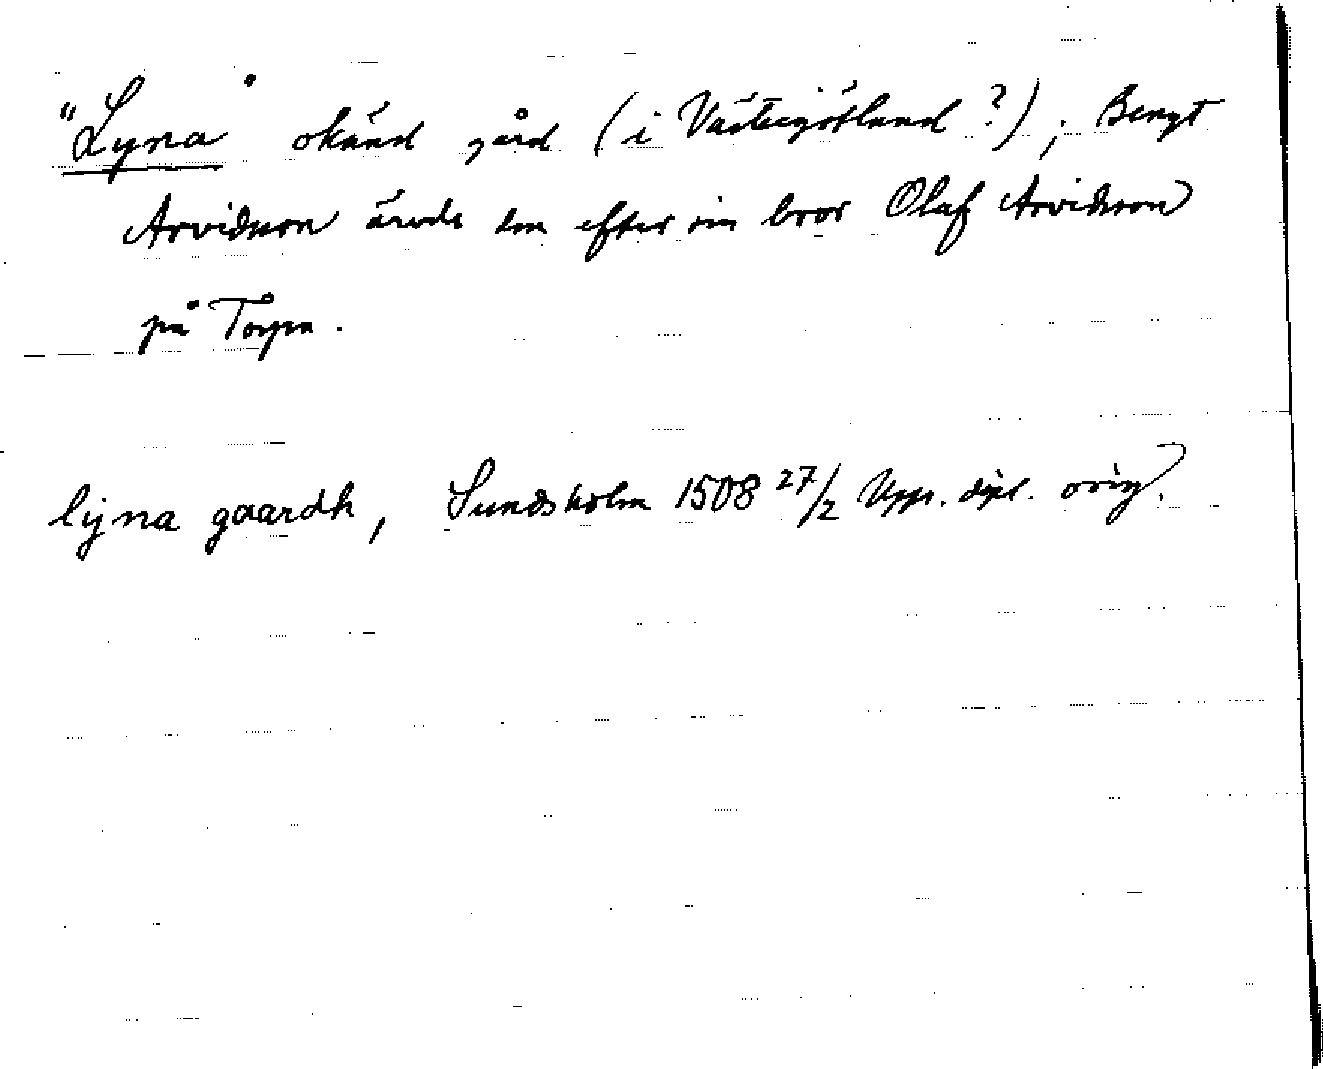 "Lyna" okänd gård (i Västergötland?); Bengt
Arvidsson ärvde den efter sin bror Olaf Arvidsson
på Torpa.
lyna gaardh, Sundsholm 1508 27/2 Upps. dipl. orig.